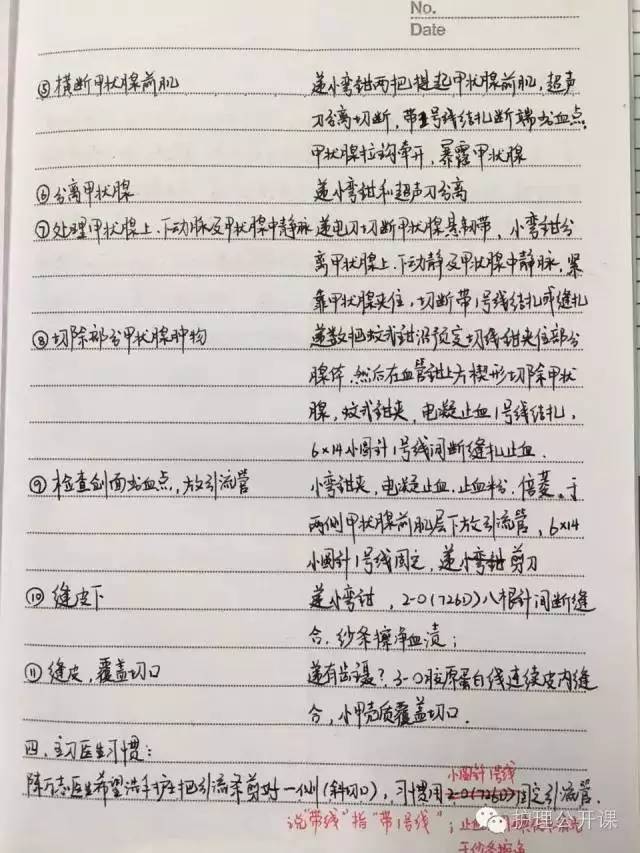 No.
Date
⑤横断甲状腺前肌 递小弯钳两把提起甲状腺前肌,超声
刀分离切断,带1号线结扎断端出血点,
甲状腺拉钩牵开,暴露甲状腺
⑥分离甲状腺 递小弯钳和超声刀分离
⑦处理甲状腺上、下动脉及甲状腺中静脉 递电刀切断甲状腺悬韧带,小弯钳分
离甲状腺上、下动静及甲状腺中静脉,紧
靠甲状腺夹住,切断带1号线结扎或缝扎
⑧切除部分甲状腺肿物 递数把蚊式钳沿预定切线钳夹住部分
腺体,然后在血管钳上方楔形切除甲状
腺,蚊式钳夹,电凝止血1号线结扎,
6×14小圆针1号线间断缝扎止血.
⑨检查创面出血点,放引流管 小弯钳夹,电凝止血,止血粉.倍菱。于
两侧甲状腺前肌层下放引流管,6×14
小圆针1号线固定,递小弯钳剪刀
⑩缝皮下 递小弯钳,2-0(726D)八根针间断缝
合.纱条擦净血渍;
⑪缝皮,覆盖切口 递有齿镊?3-0胶原蛋白线连续皮内缝
合,小甲壳质覆盖切口.
四、主刀医生习惯:
小圆针1号线
医生希望洗手护士把引流条剪好一侧(斜切口),习惯用2-0(726D)固定引流管.
说“带线”指“带1号线”;止血
护理公开课